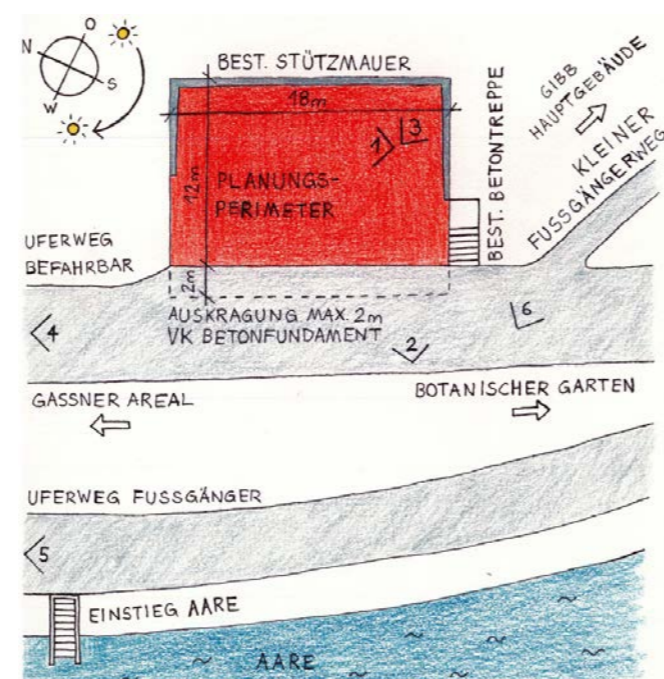 O
N
S
W
BEST. STÜTZMAUER
18m
12m
1
3
PLANUNGS-
PERIMETER
BEST. BETONTREPPE
GIBB
HAUPTGEBÄUDE
KLEINER
FUSSGÄNGERWEG
UFERWEG
BEFAHRBAR
2m
AUSKRAGUNG MAX. 2m
VK BETONFUNDAMENT
4
2
6
GASSNER AREAL
BOTANISCHER GARTEN
UFERWEG FUSSGÄNGER
5
EINSTIEG AARE
AARE